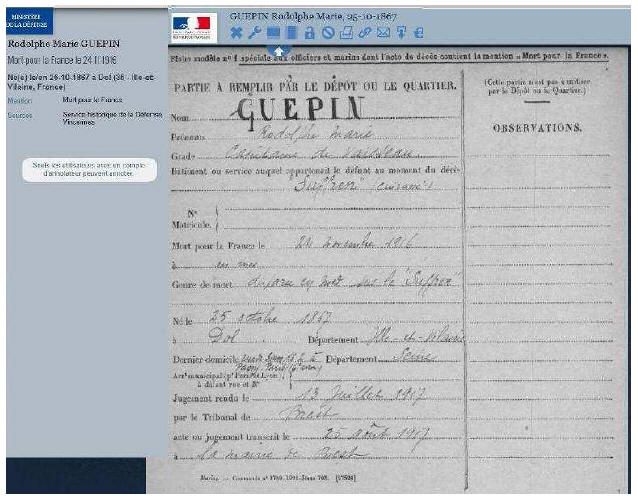 MINISTÈRE
DE LA DÉFENSE
Rodolphe Marie GUEPIN
Mort pour la France le 24 11 1916
Né(e) le/en 25-10-1867 à Dol (35 - Ille-et-
Vilaine, France)
Mention Mort pour la France
Sources Service historique de la Défense,
Vincennes
Seuls les utilisateurs avec un compte
d'annotateur peuvent annoter.
GUEPIN Rodolphe Marie, 25-10-1867
Fiche modèle nº 1 spéciale aux officiers et marins dont l'acte de décès contient la mention « Mort pour la France ».
PARTIE À REMPLIR PAR LE DÉPÔT OU LE QUARTIER.
(Cette partie n'est pas à utiliser
par le Dépôt ou le Quartier.)
OBSERVATIONS.
Nom GUEPIN
Prénoms Rodolphe Marie
Grade Capitaine de Vaisseau
Bâtiment ou service auquel appartenait le défunt au moment du décès
"Suffren" (cuirassé)
Nº
Matricule.
Mort pour la France le 24 novembre 1916
à en mer
Genre de mort disparu en mer sur le "Suffren"
Né le 25 octobre 1867
à Dol Département Ille-et-Vilaine
Dernier domicile Paris (6 Département Seine
Arrt municipal (pr Paris et Lyon)
à défaut rue et Nº
Jugement rendu le 13 Juillet 1917
par le Tribunal de Brest
acte ou jugement transcrit le 25 août 1917
à la mairie de Brest